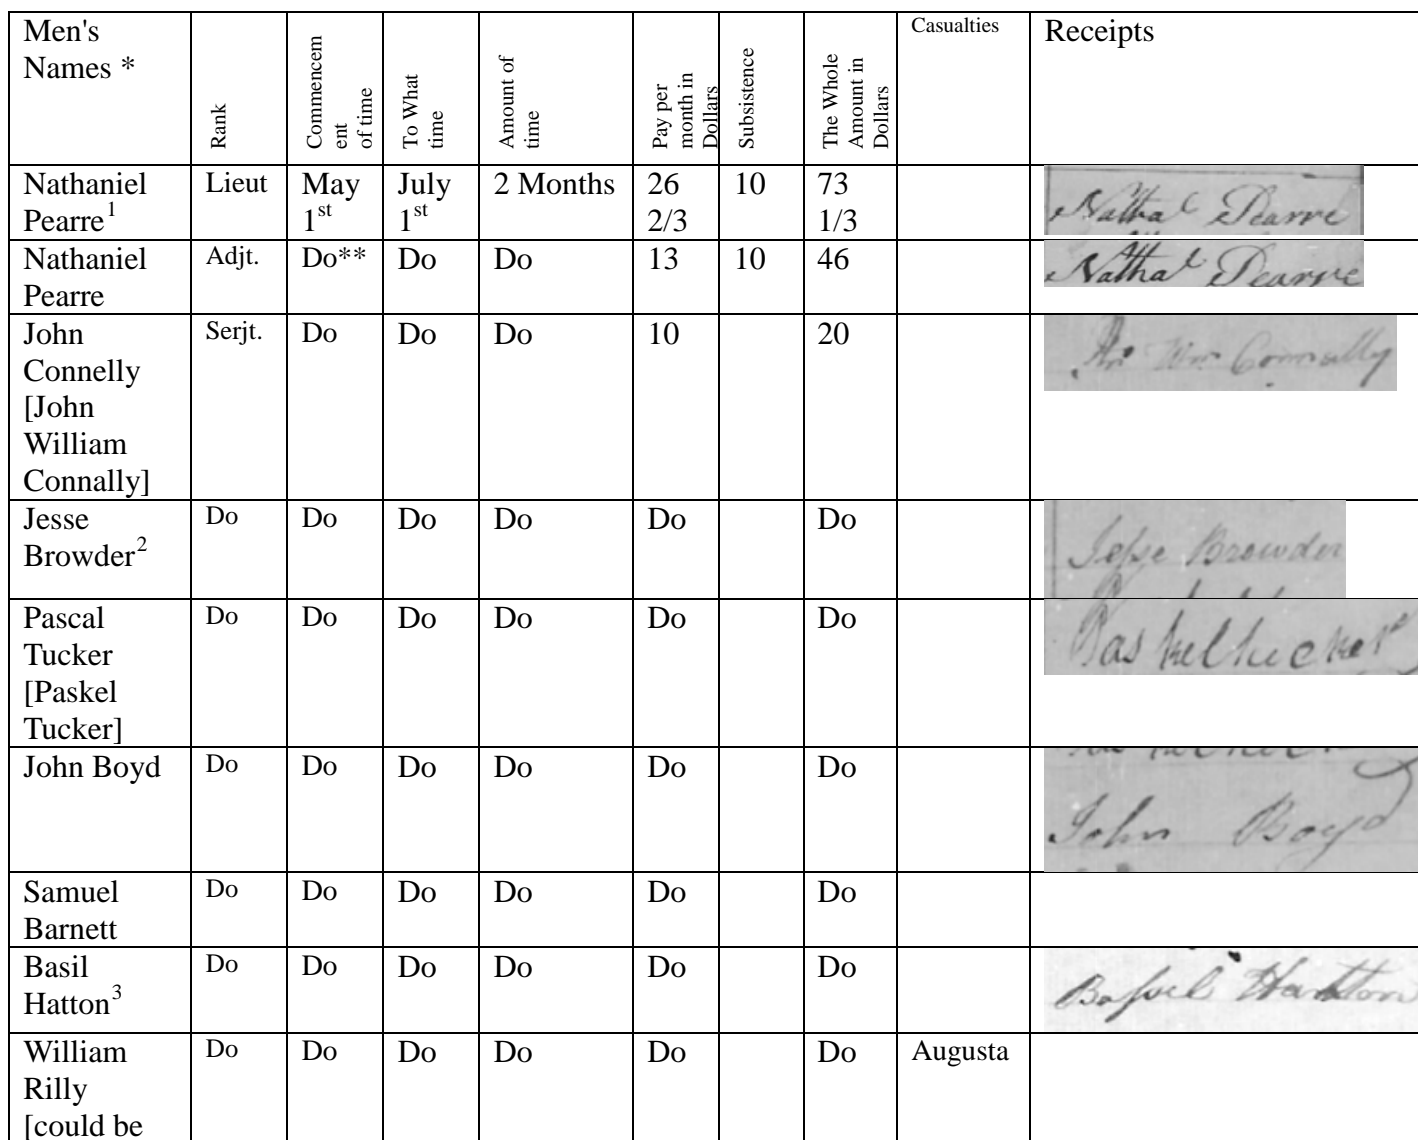 Men's Names * Rank Commencement of time To What time Amount of time Pay per month in Dollars Subsistence The Whole Amount in Dollars Casualties Receipts
Nathaniel Pearre1 Lieut May 1st July 1st 2 Months 26 2/3 10 73 1/3 Nathal Pearre
Nathaniel Pearre Adjt. Do** Do Do 13 10 46 Nathal Pearre
John Connelly [John William Connally] Serjt. Do Do Do 10 20 Jno Wm Connally
Jesse Browder2 Do Do Do Do Do Do Jesse Browder
Pascal Tucker [Paskel Tucker] Do Do Do Do Do Do Paskel tucker
John Boyd Do Do Do Do Do Do John Boyd
Samuel Barnett Do Do Do Do Do Do
Basil Hatton3 Do Do Do Do Do Do Bassel Hatton
William Rilly [could be Do Do Do Do Do Do Augusta